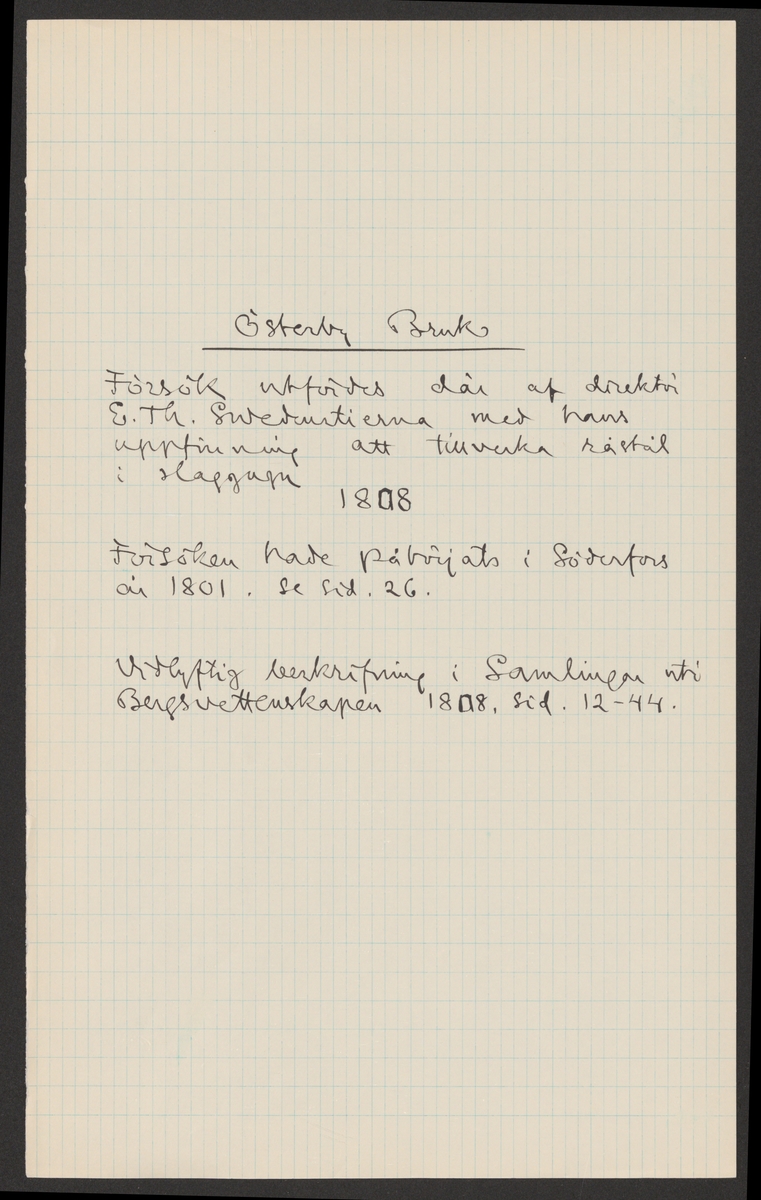 Österby Bruk
Försök utfördes där af direktör
E. Th. Svedenstierna med hans
uppfinning att tillverka råstål
i slaggugn
1808
Försöken hade påbörjats i Söderfors
år 1801. Se sid. 26.
Vidlyftig beskrifning i Samlingar uti
Bergsvettenskapen 1808, sid. 12-44.